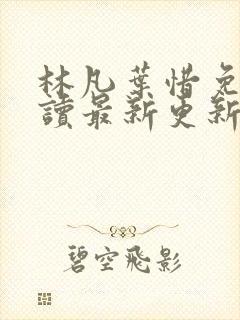 林凡葉惜免
讀最新更新
碧空飛影